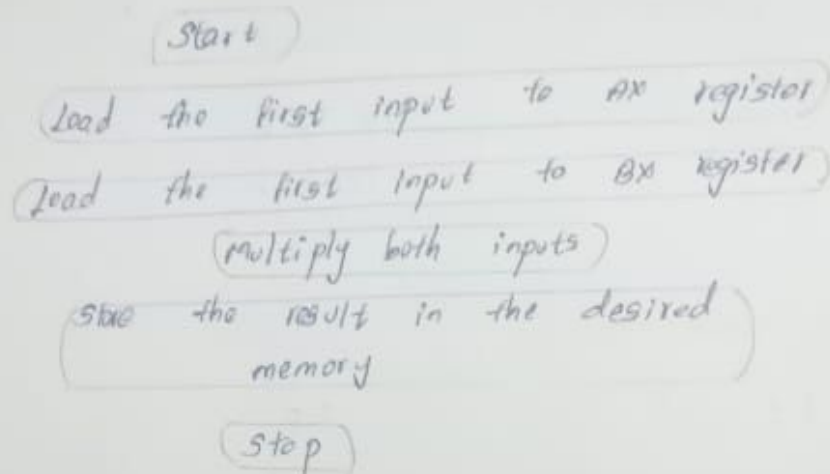 Start
Load the first input to AX register
Load the first input to BX register
Multiply both inputs
Store the result in the desired
memory
Stop